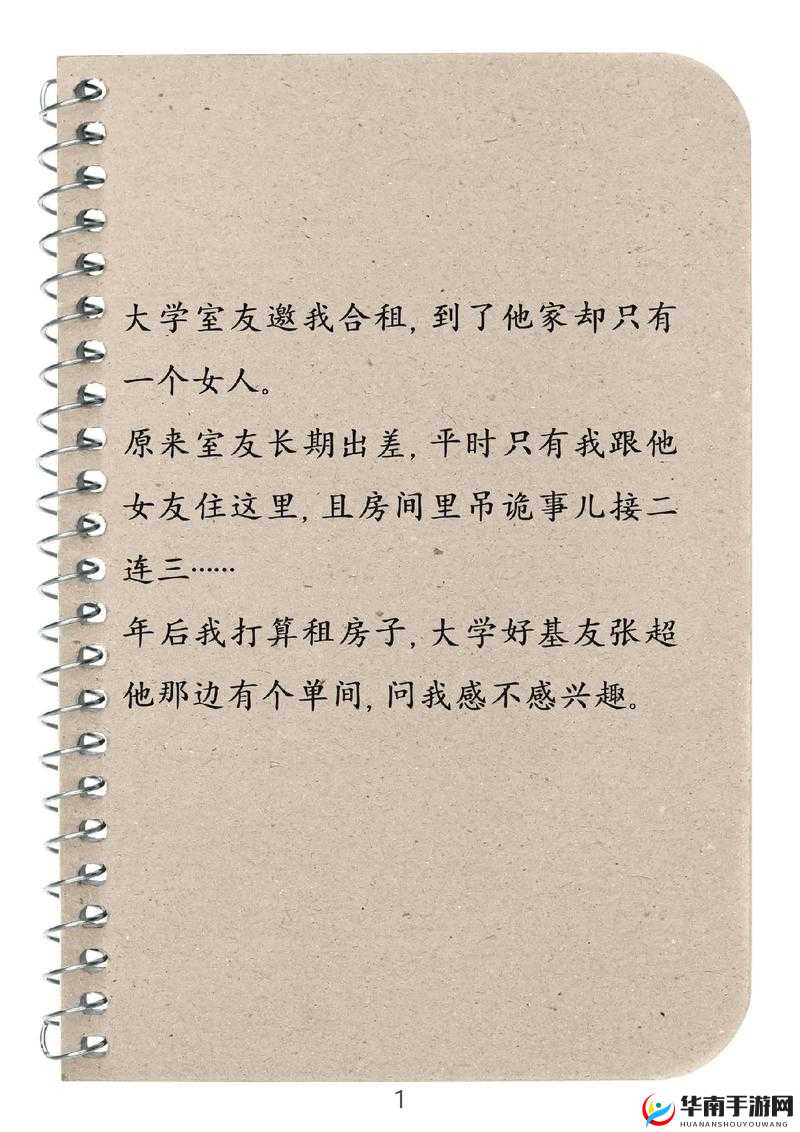 大学室友邀我合租，到了他家却只有
一个女人。
原来室友长期出差，平时只有我跟他
女友住这里，且房间里吊诡事儿接二
连三……
年后我打算租房子，大学好基友张超
他那边有个单间，问我感不感兴趣。
1
华南手游网
HUANANSHOUYOUWANG